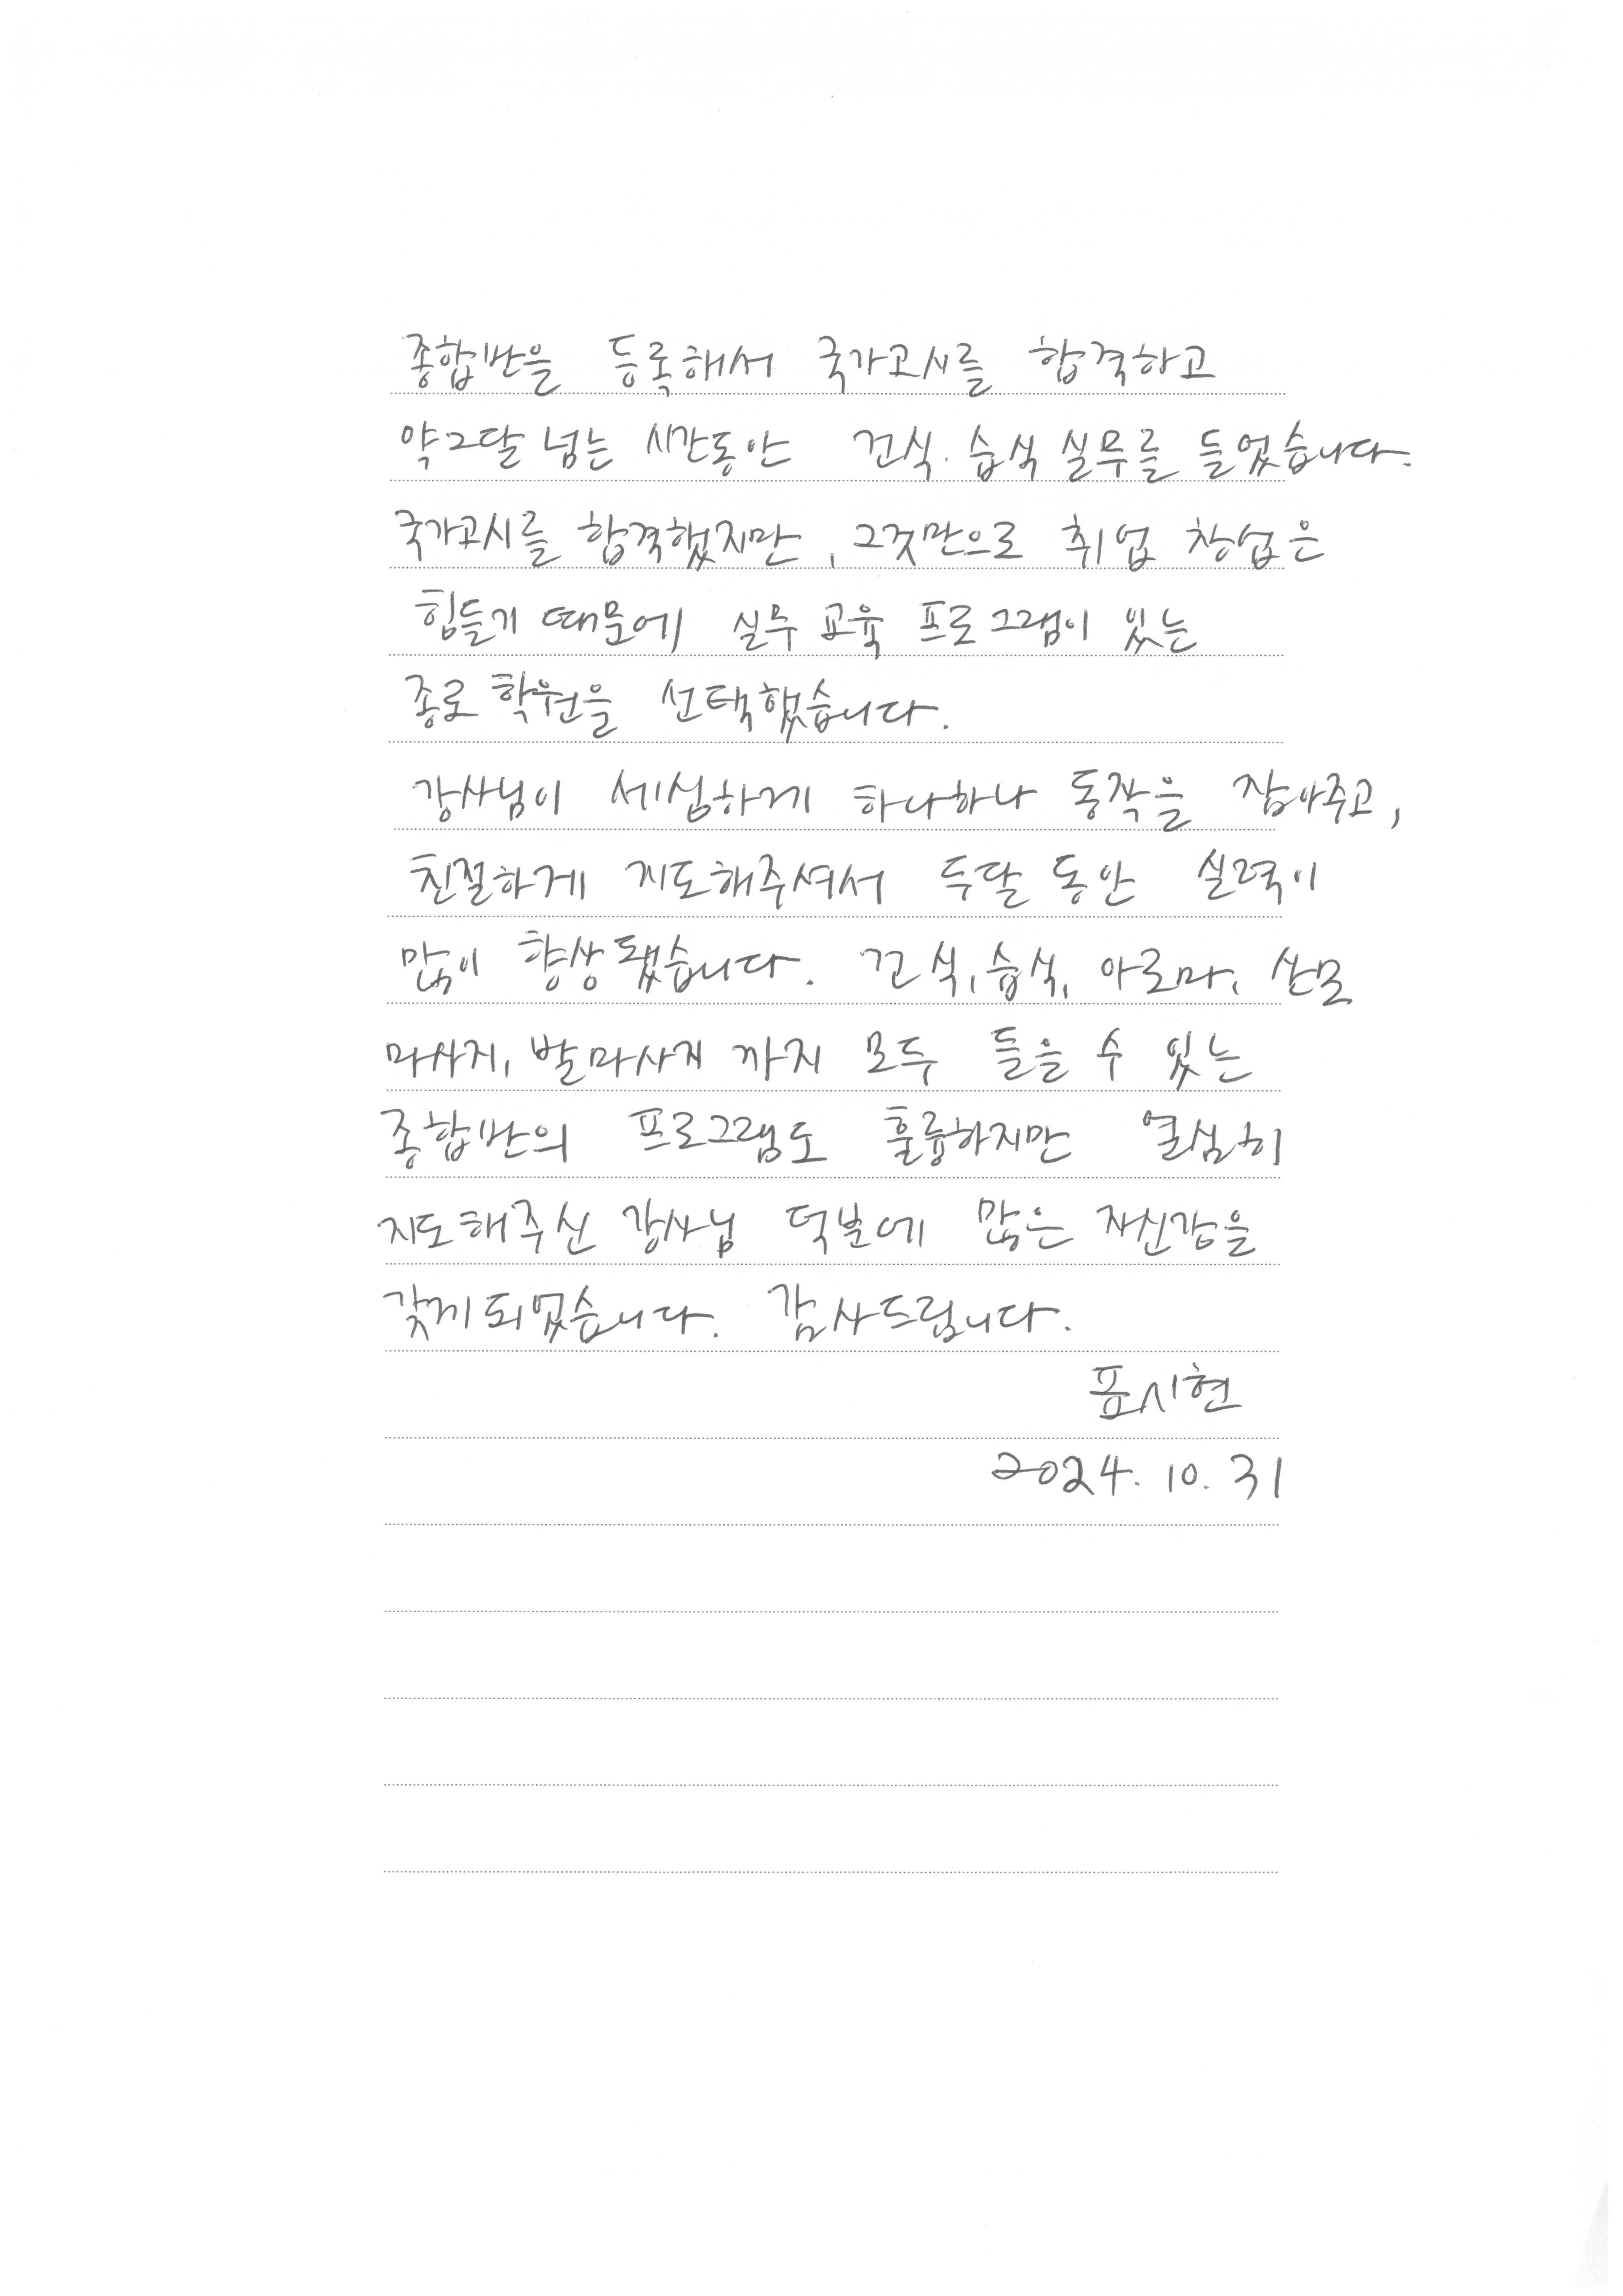 종합반을 등록해서 국가고시를 합격하고
약 2달 넘는 시간동안 건식. 습식 실무를 들었습니다.
국가고시를 합격했지만, 그것만으로 취업 창업은
힘들기 때문에 실무 교육 프로그램이 있는
종로 학원을 선택했습니다.
강사님이 세심하게 하나하나 동작을 잡아주고,
친절하게 지도해주셔서 두달 동안 실력이
많이 향상됐습니다. 건식, 습식, 아로마, 산모
마사지, 발마사지 까지 모두 들을 수 있는
종합반의 프로그램도 훌륭하지만 열심히
지도해주신 강사님 덕분에 많은 자신감을
갖게 되었습니다. 감사드립니다.
표시현
2024. 10. 31